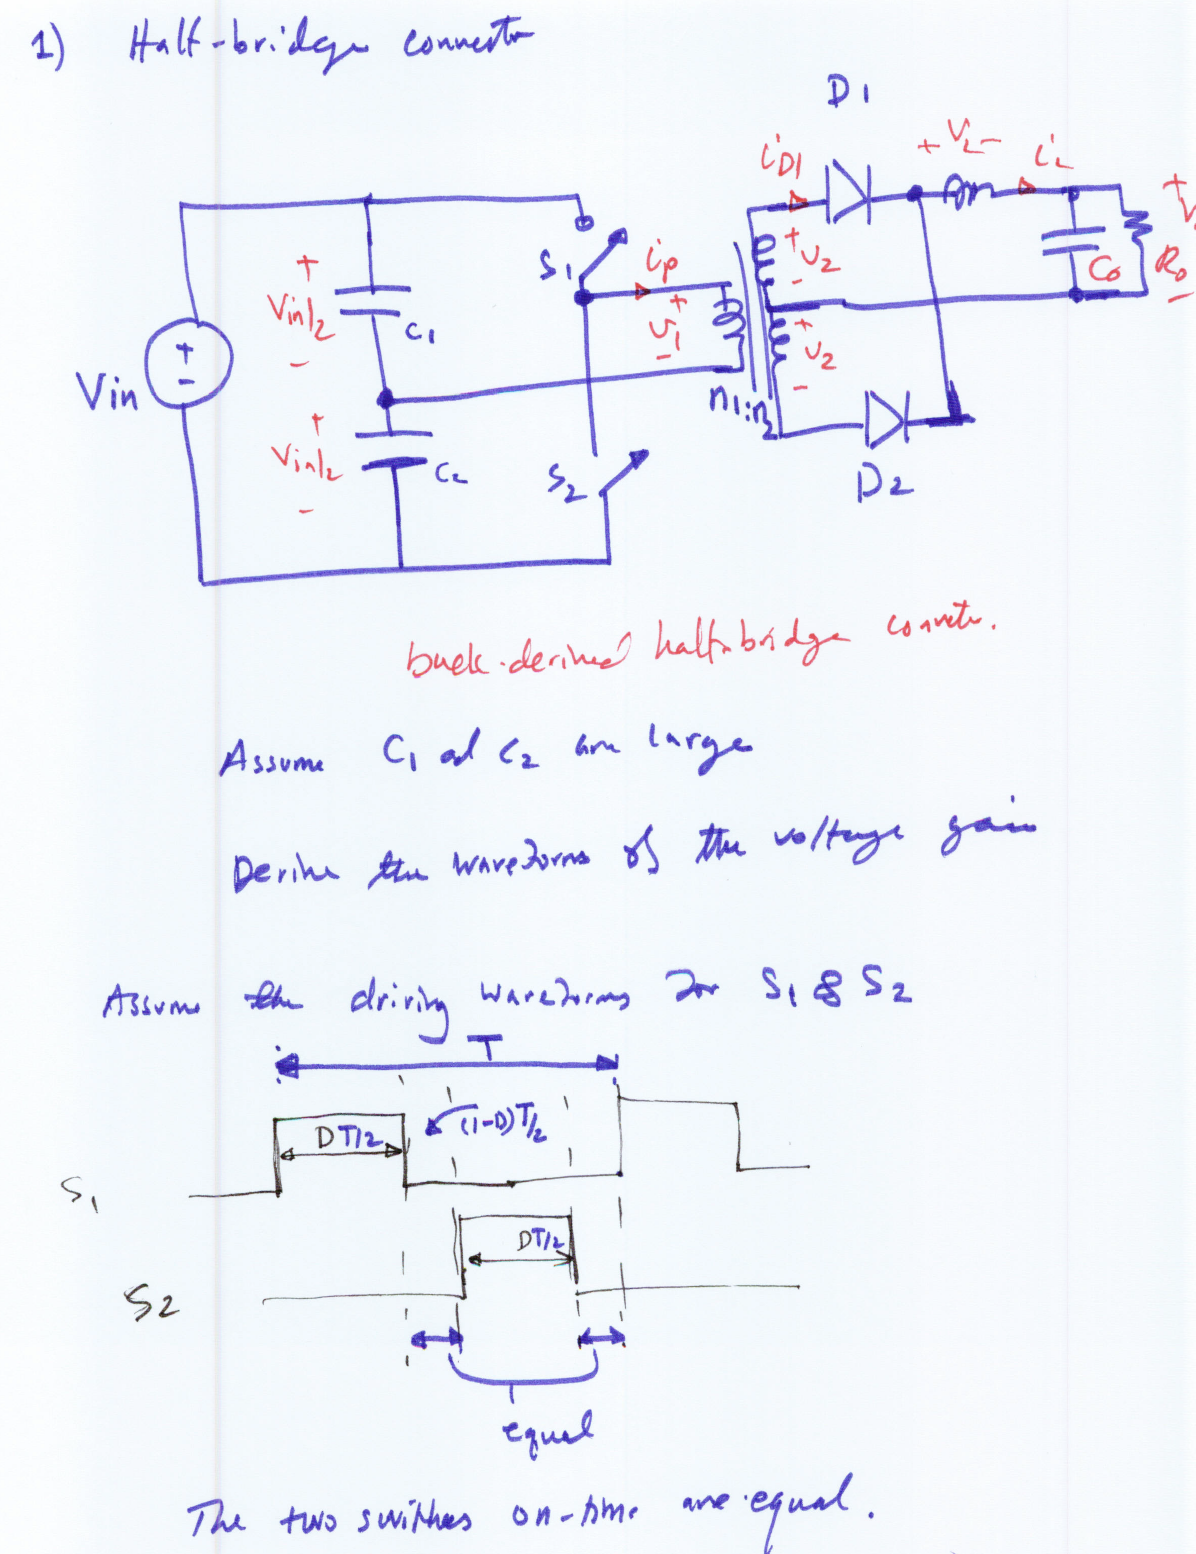 1) Half-bridge converter
D1
iD1
+ VL -
iL
+
V
Ro
-
Co
+
Vin/2
-
C1
S1
ip
+
v1
-
+
v2
-
+
v2
-
n1:n2
Vin
+
-
+
Vin/2
-
C2
S2
D2
buck-derived half-bridge converter.
Assume C1 ad C2 are large
Derive the waveforms of the voltage gain
Assume the driving waveforms for S1 & S2
T
DT/2
(1-D)T/2
S1
DT/2
S2
equal
The two swithes on-time are equal.